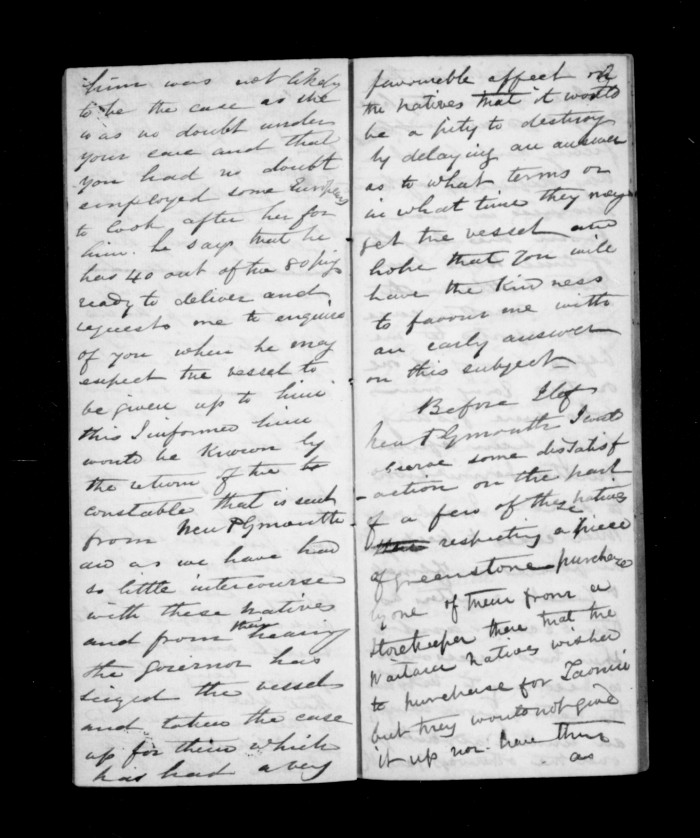 him was not likely
to be the case as she
was no doubt under
your care and that
you had no doubt
employed some Europeans
to look after her for
him. he says that he
has 40 out of the 80 pigs
ready to deliver and
requests me to enquire
of you when he may
expect the vessel to
be given up to him
this I informed him
would be known by
the return of the to
constable that is sent
from New Plymouth
and as we have had
so little intercourse
with these natives
and from their hearing
the Governor has
seized the vessel
and taken the case
up for them which
has had a very
favourable affect on
the natives that it would
be a pity to destroy
by delaying an answer
as to what terms or
in what time they may
get the vessel and
hope that you will
have the kindness
to favour me with
an early answer
on this subject
Before I left
New Plymouth I was
observe some dissatisf
-action on the part
of a few of these natives
respecting a piece
of greenstone purchase
by one of them from a
storekeeper there that the
Waitara natives wished
to purchase for Taonui
but they would not give
it up nor have them
as